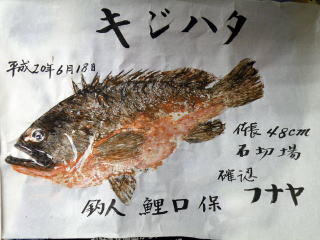 キジハタ
平成20年6月18日
体長48cm
石切場
確認
フナヤ
釣人 鯉口保